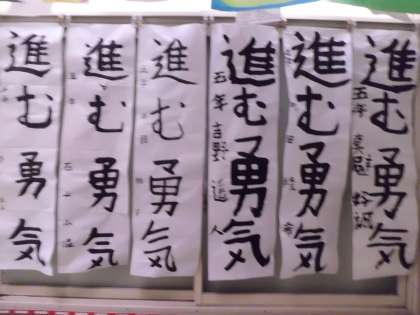 進む勇気
五年 吉野 進人
進む勇気
進む勇気
五年
進む勇気
進む勇気
進む勇気